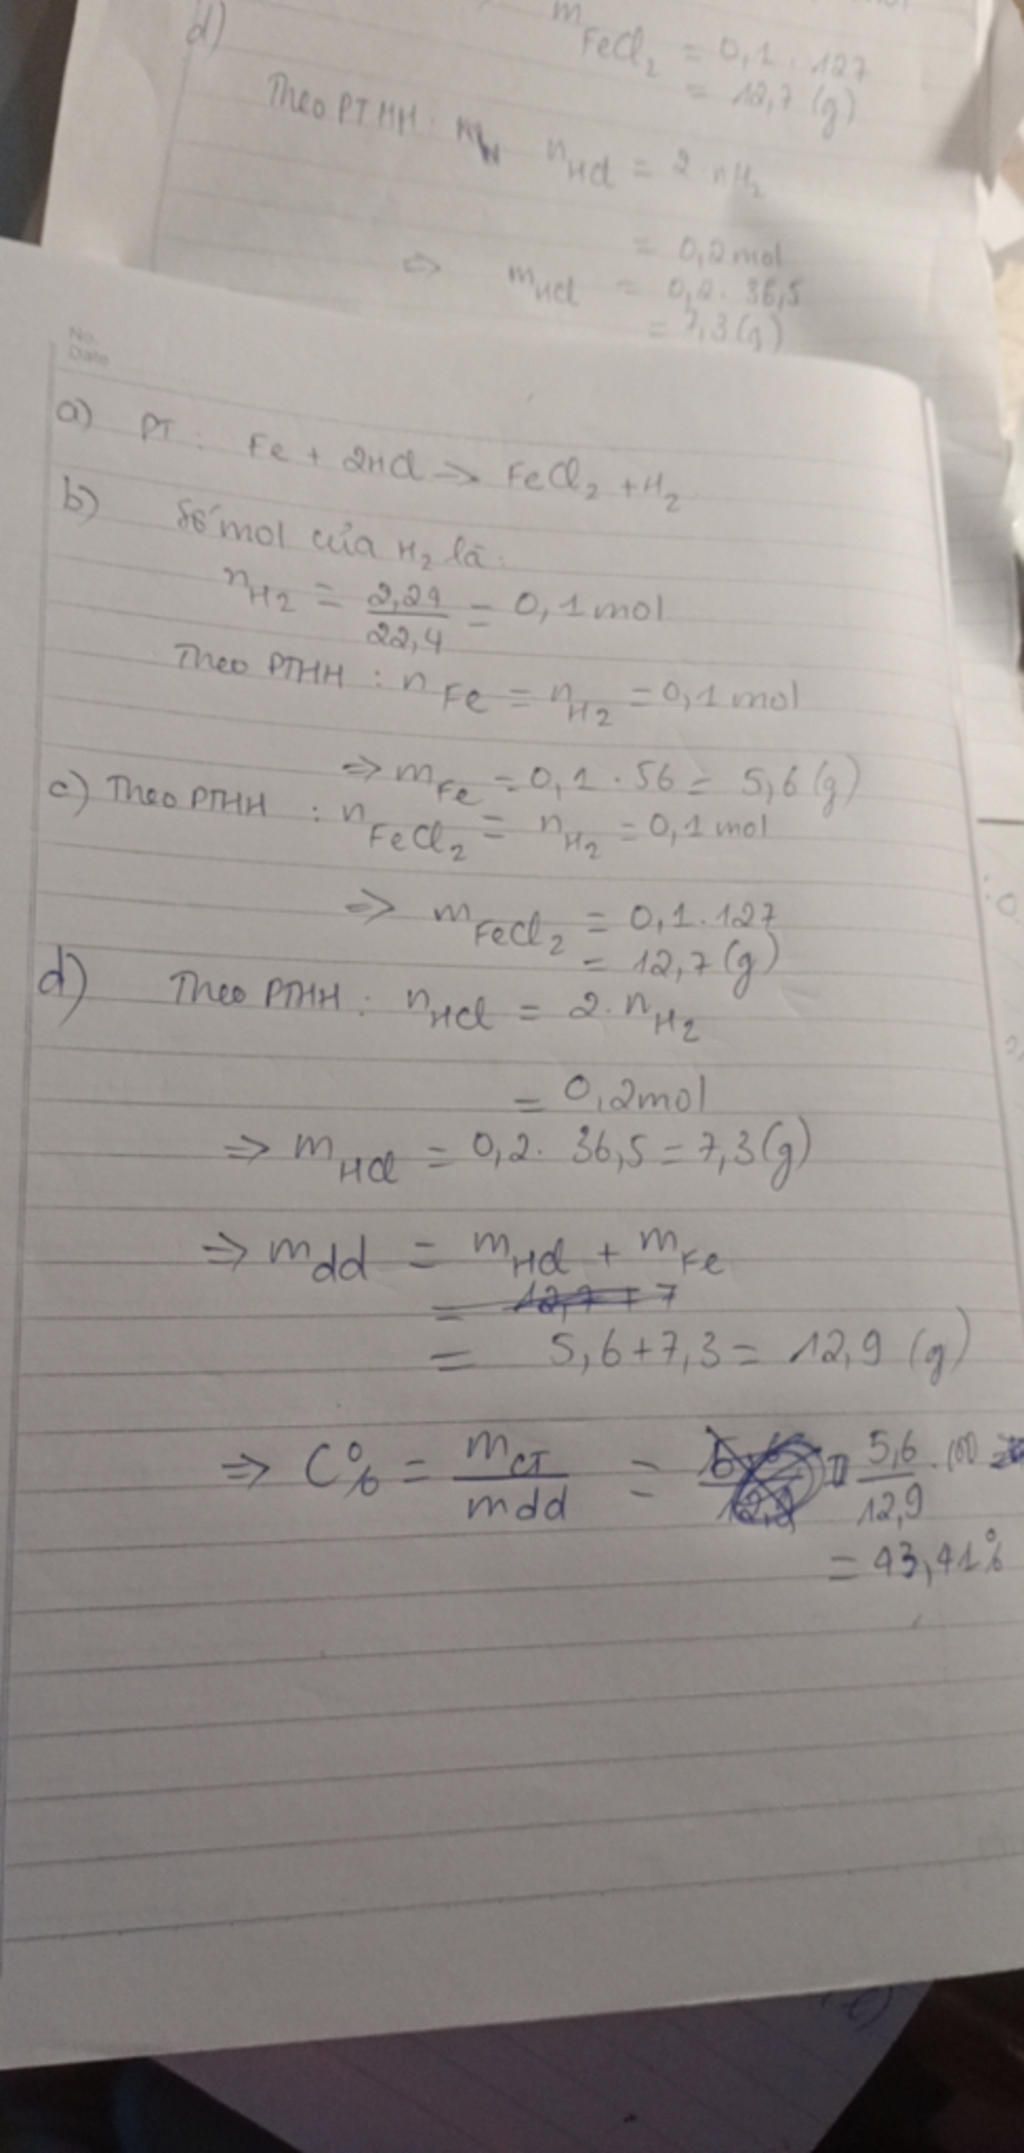 m FeCl2 = 0,1 . 127
= 12,7 (g)
d)
Theo PTHH : nHCl = 2. nH2
= 0,2 mol
=> mHCl = 0,2. 36,5
= 7,3 (g)
No.
Date
a) PT : Fe + 2HCl => FeCl2 + H2
b) Số mol của H2 là :
nH2 = 2,24/22,4 = 0,1 mol
Theo PTHH : nFe = nH2 = 0,1 mol
=> mFe = 0,1 . 56 = 5,6 (g)
c) Theo PTHH : nFeCl2 = nH2 = 0,1 mol
=> mFeCl2 = 0,1. 127
= 12,7 (g)
d) Theo PTHH : nHCl = 2. nH2
= 0,2mol
=> mHCl = 0,2. 36,5 = 7,3(g)
=> mdd = mHCl + mFe
= 5,6 + 7,3 = 12,9 (g)
=> C% = mCT/mdd = 5,6/12,9 . 100
= 43,41%